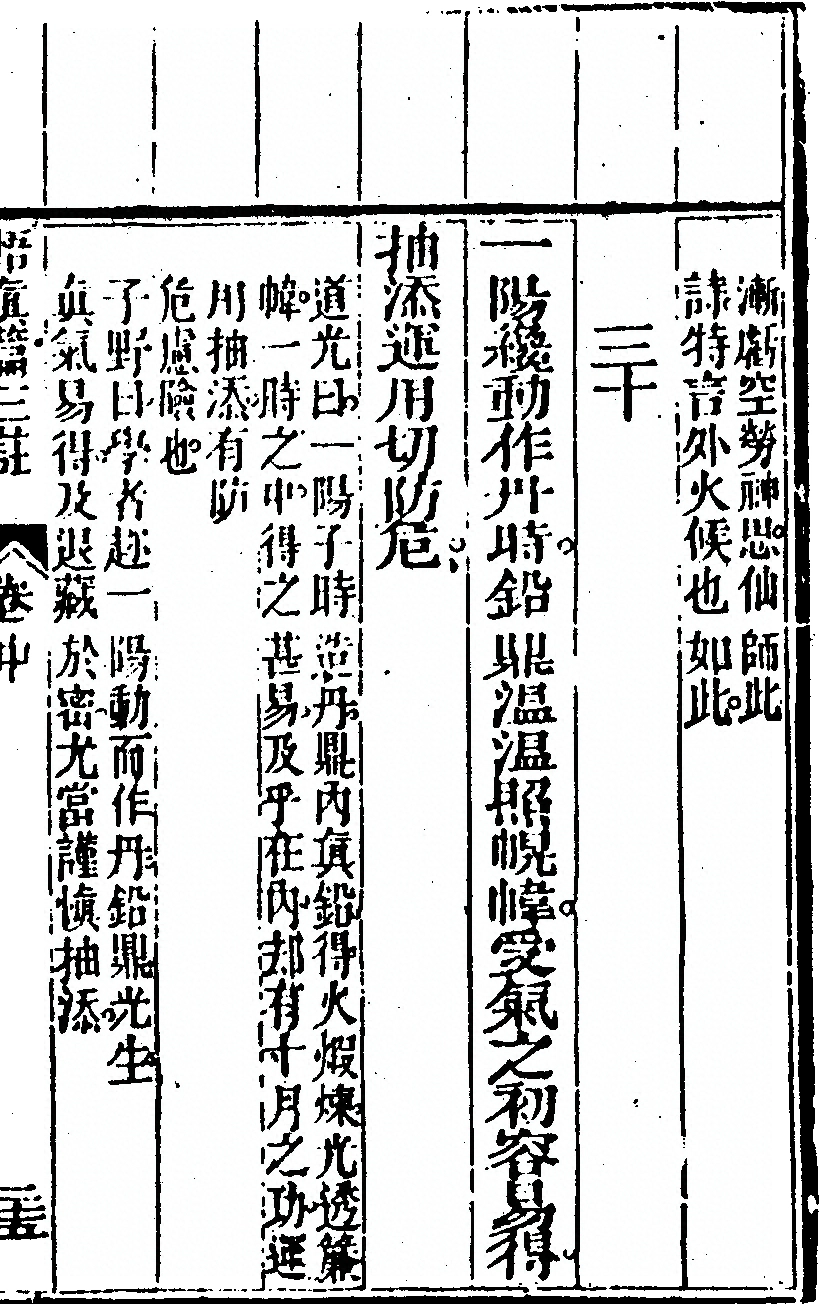 漸虧空勞神思仙師此
詠特言外火候也如此
三十
一陽纔動作丹時鉛鼎溫溫照幌幃受氣之初容易得
抽添運用切防危
道光曰一陽子時造丹鼎內眞鉛得火煆煉光透簾
幃一時之中得之甚易及乎在內却有十月之功運
用抽添有防
危慮險也
子野曰學者趂一陽動而作丹鉛鼎光生
眞氣易得及退藏於密尤當謹愼抽添
悟眞篇三註
卷中
三五